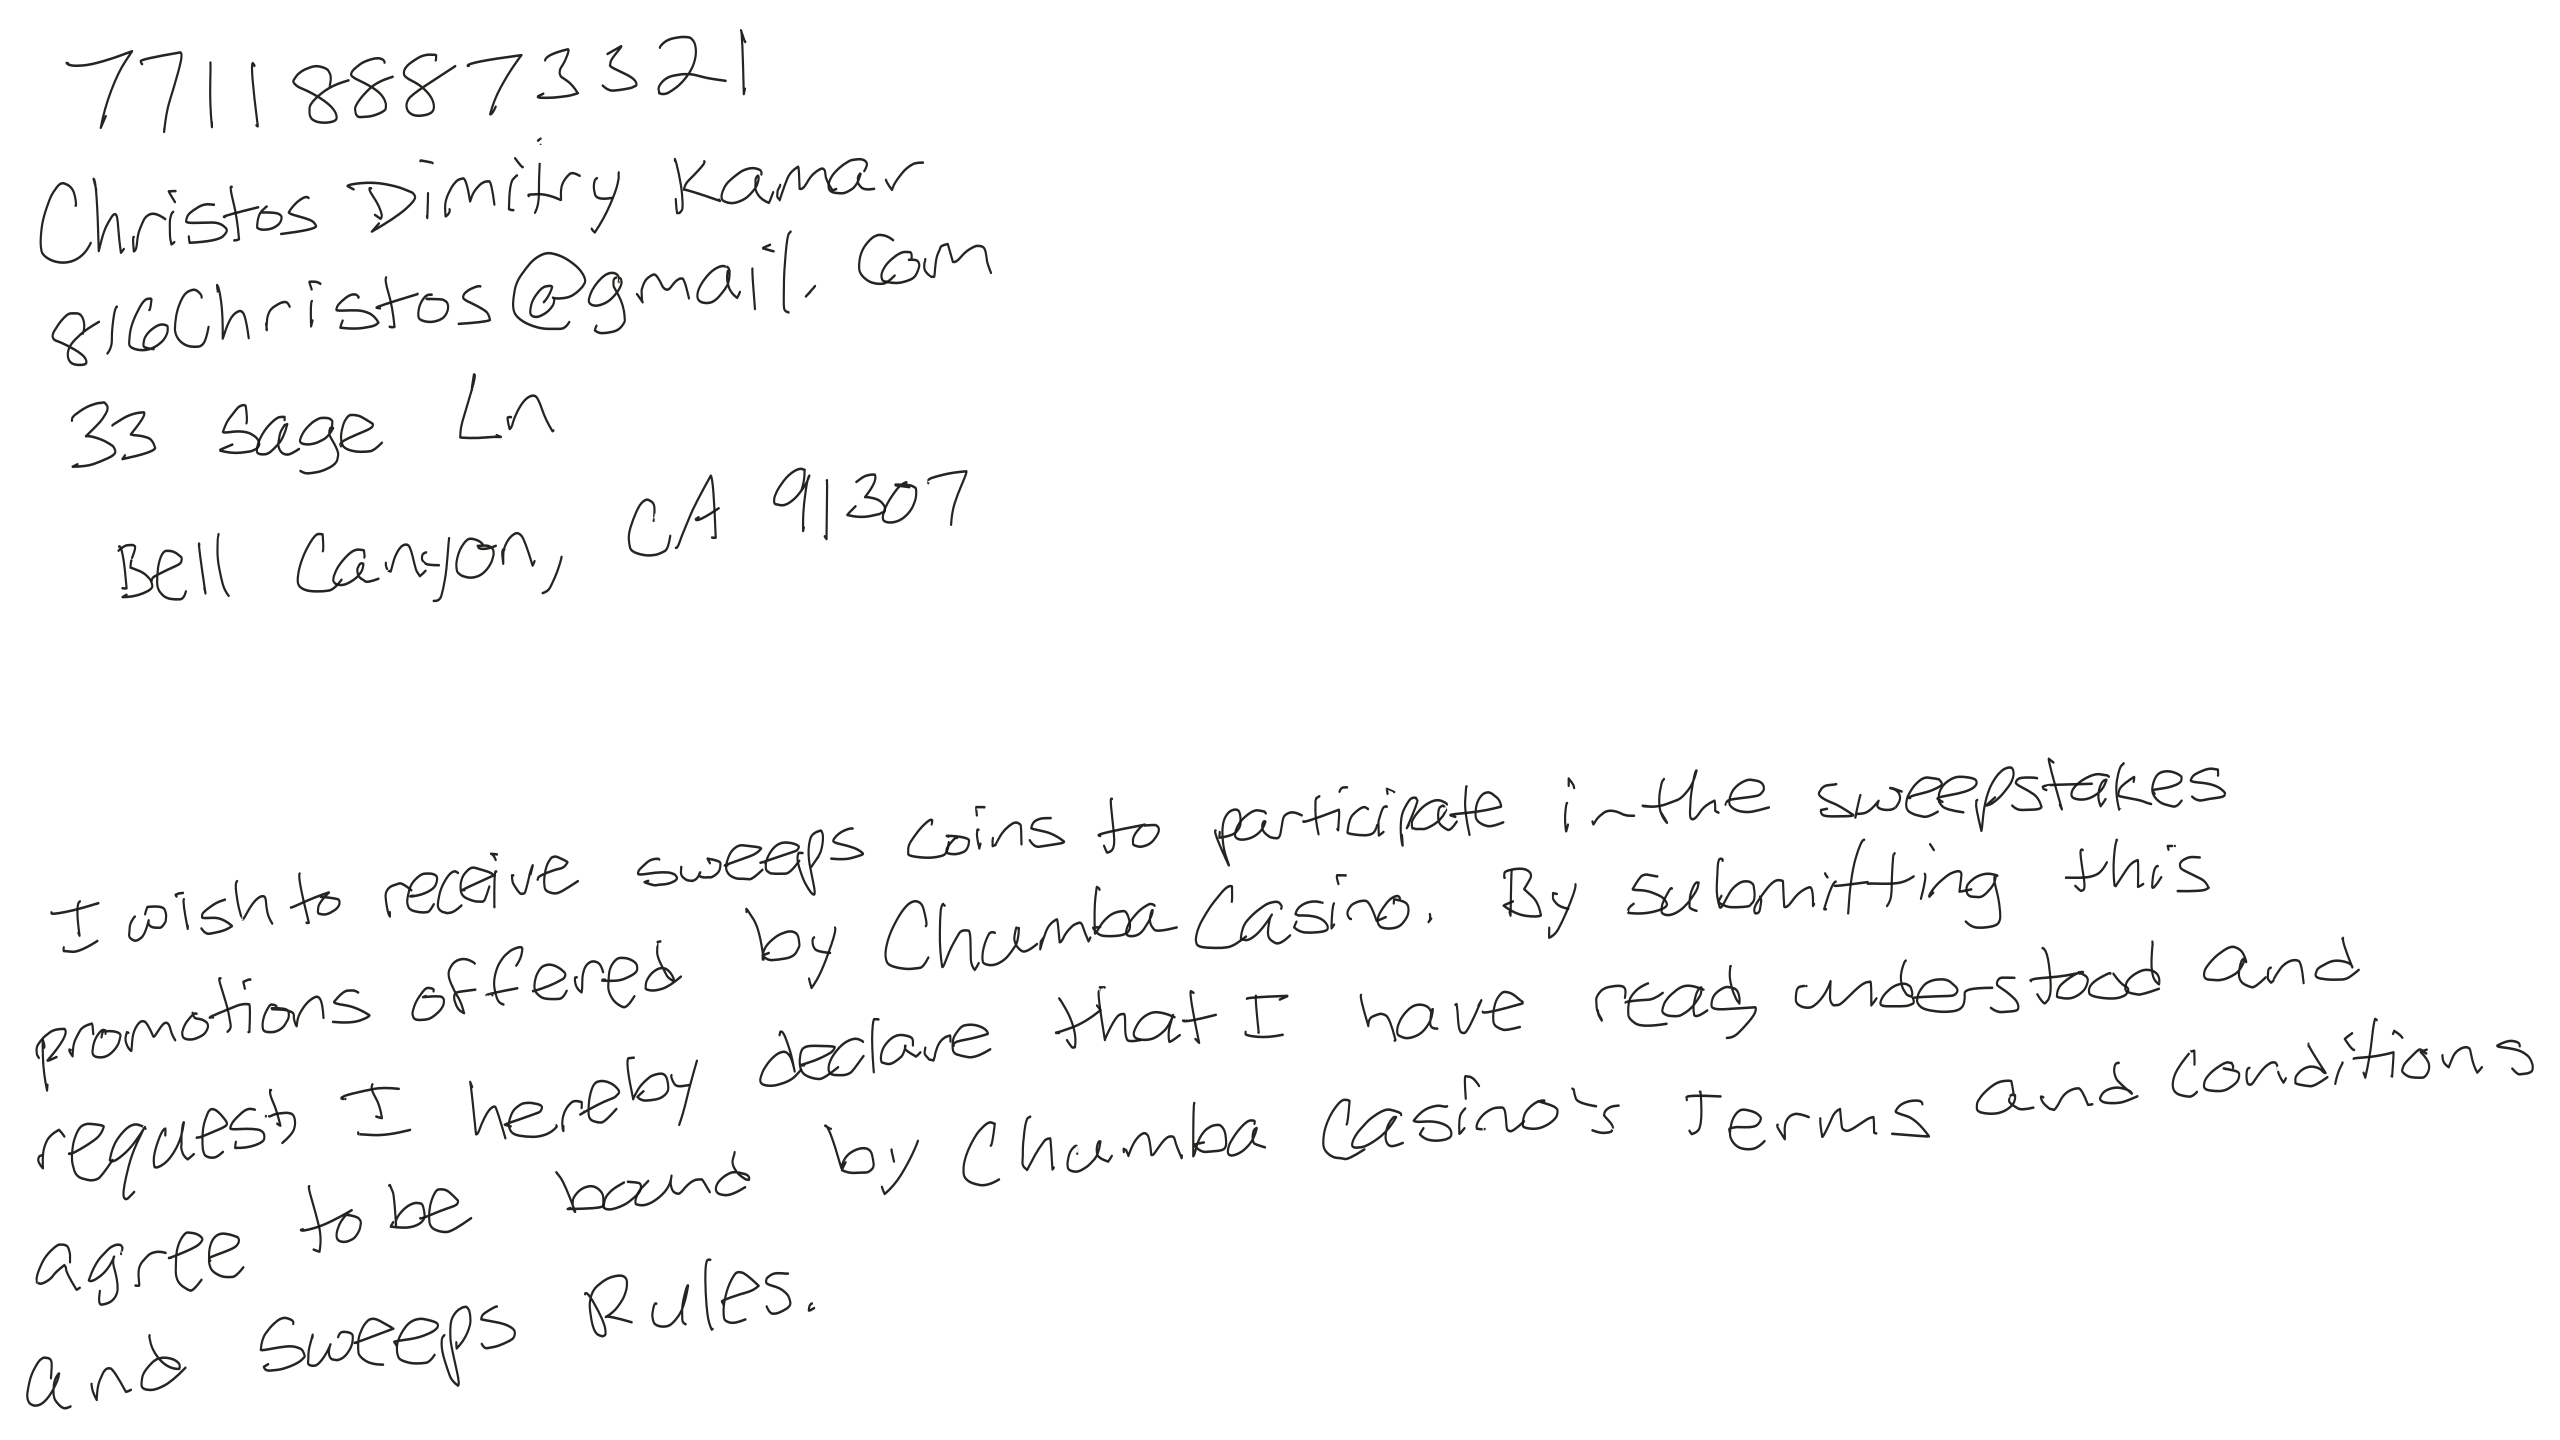 771188873321
Christos Dimitry Kamar
816Christos@gmail.com
33 Sage Ln
Bell Canyon, CA 91307
I wish to receive sweeps coins to participate in the sweepstakes
promotions offered by Chumba Casino. By submitting this
request, I hereby declare that I have read, understood and
agree to be bound by Chumba Casino's Terms and conditions
and Sweeps Rules.